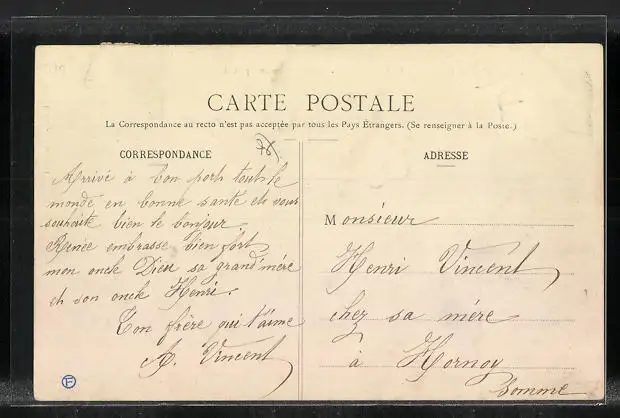 CARTE POSTALE
La Correspondance au recto n'est pas acceptée par tous les Pays Étrangers. (Se renseigner à la Poste.)
CORRESPONDANCE
76
Arrivé à bon port tout le
monde en bonne santé et vous
souhaite bien le bonjour
Renée embrasse bien fort
mon oncle Dieu sa grand'mère
et son oncle Henri.
Ton frère qui t'aime
A. Vincent
F
ADRESSE
Monsieur
Henri Vincent
chez sa mére
à Hornoy
Somme